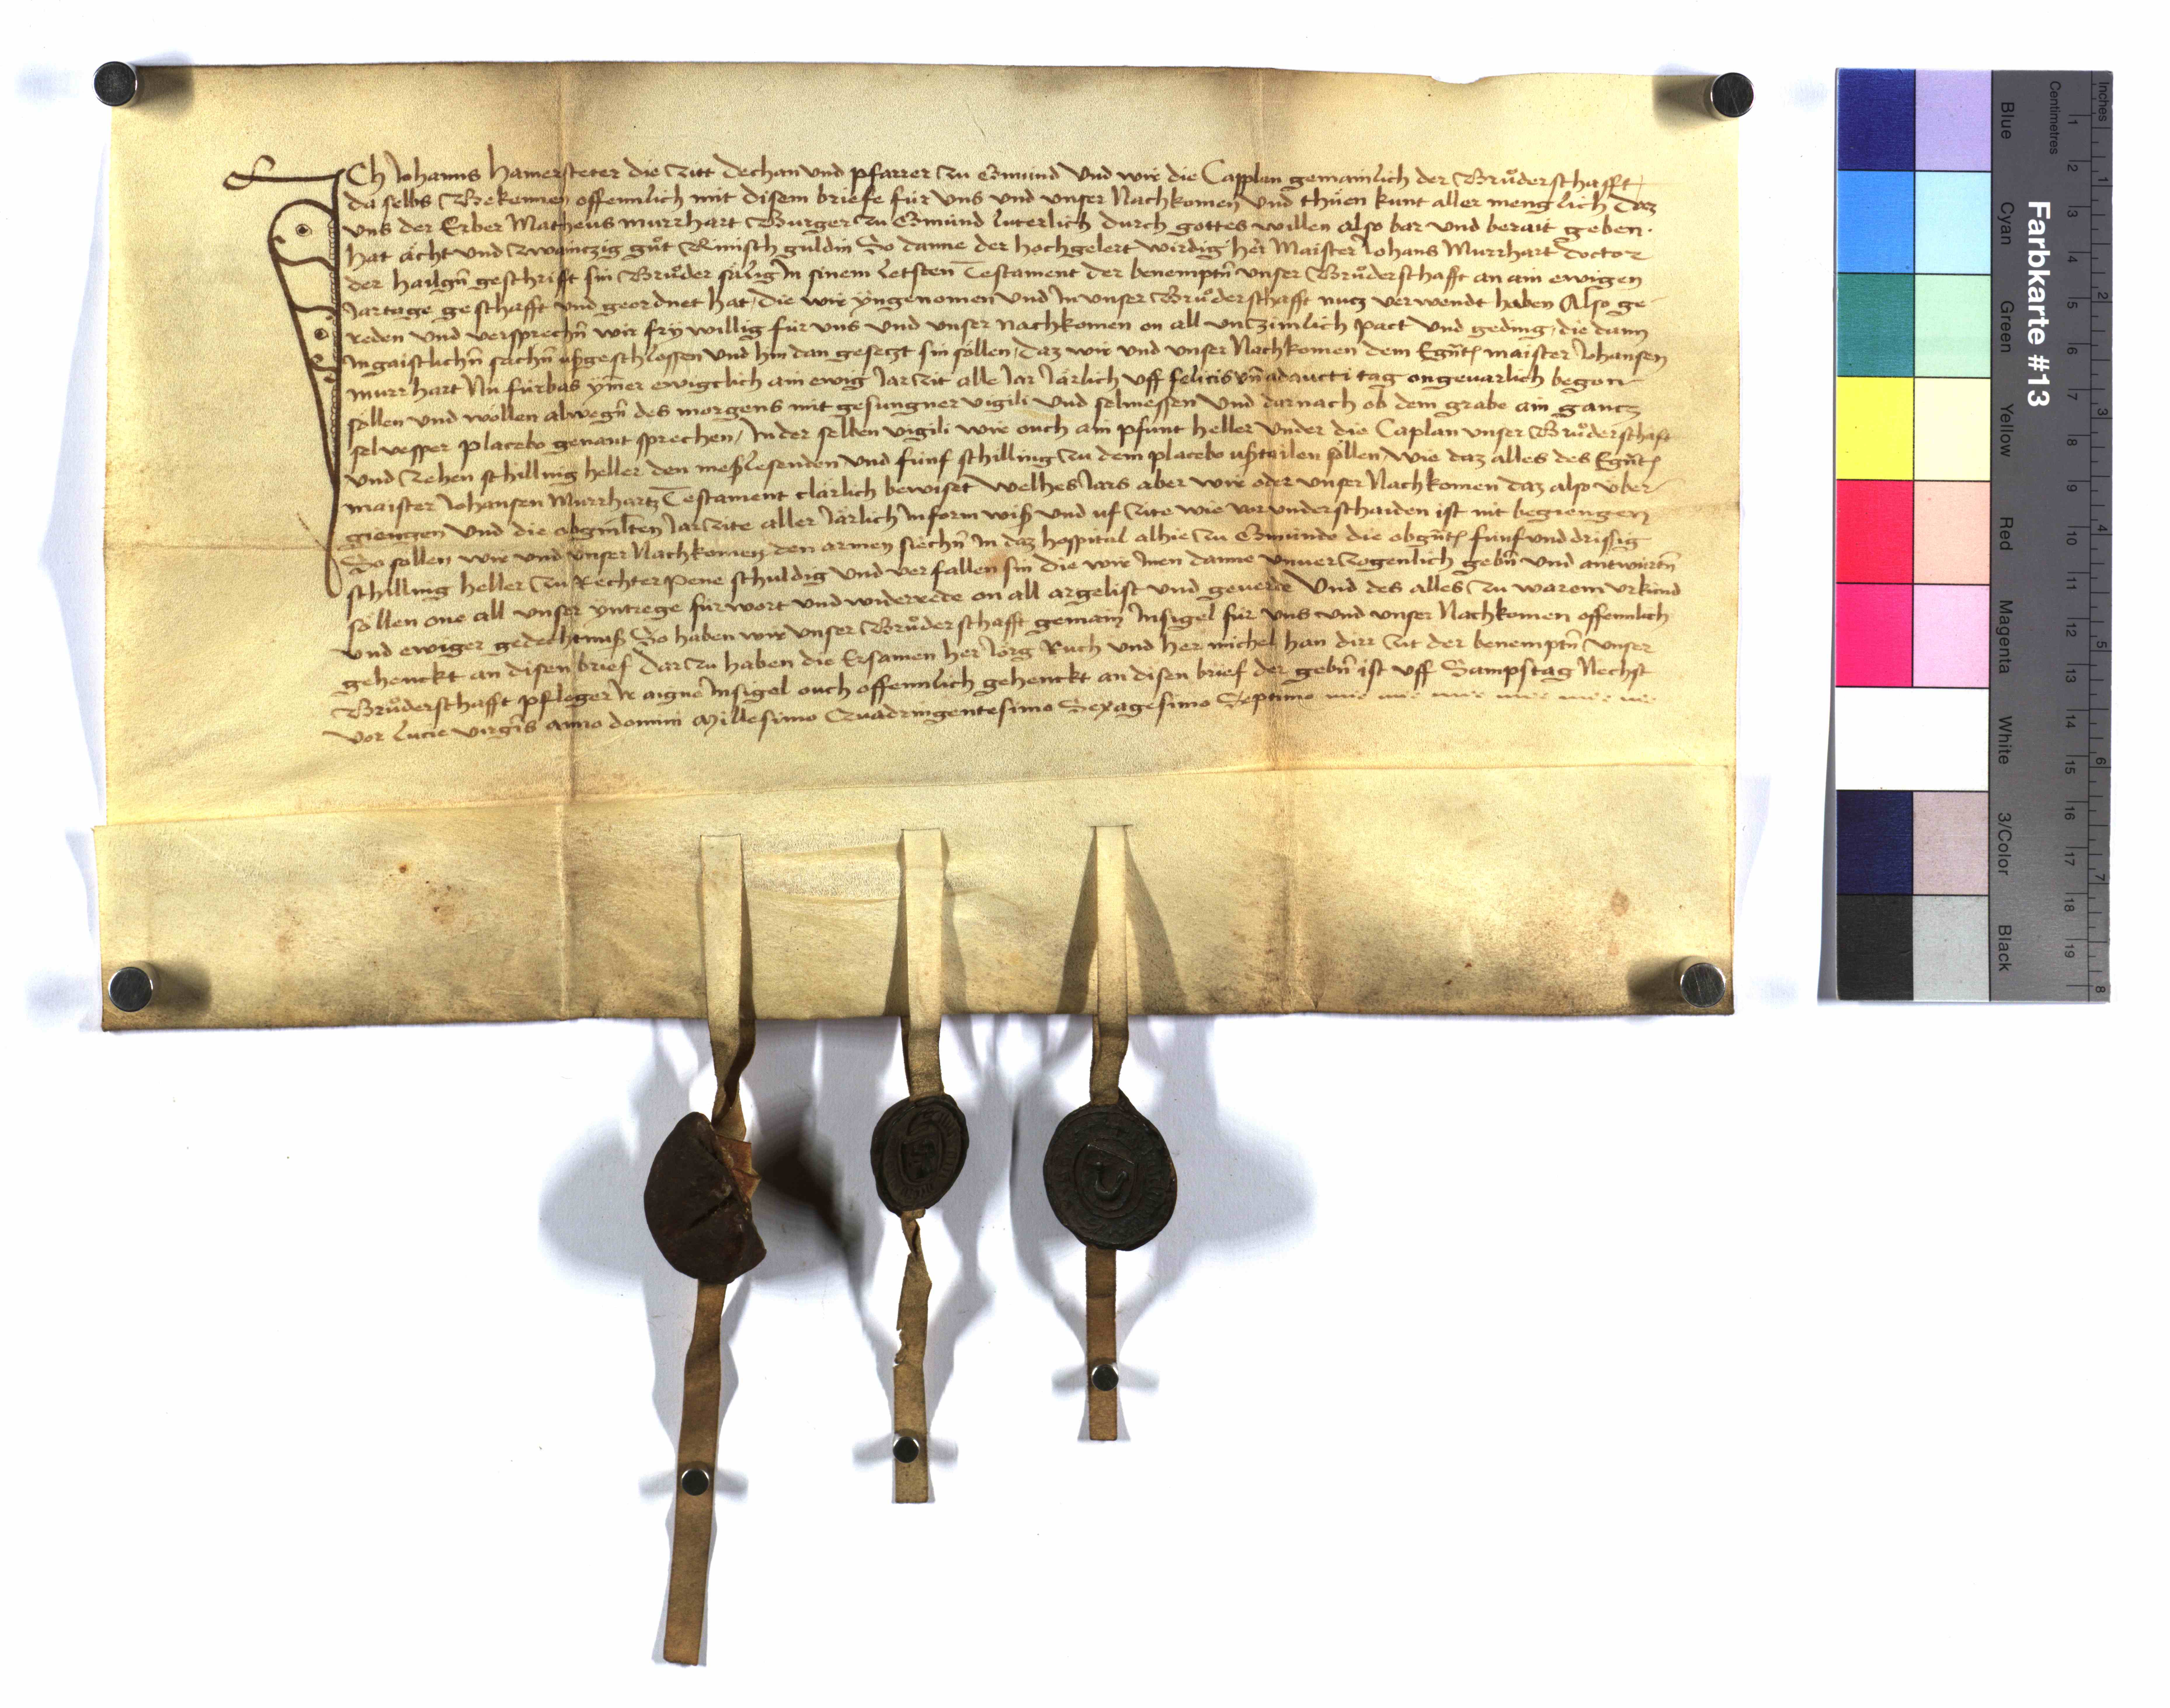 ICh Johanns Hamersteter die Zitt Dechan und pfarrer zu Gmünd und wir die Capplan gemainlich der Brůderschafft
da selbs Bekennen offennlich mit disem briefe für uns und unser Nachkomen und thüen kunt aller menglich Daz
uns der Erber Matheus murrhart Burger zu Gmünd luterlich durch gottes willen Also bar und berait geben
hat ächt und zwainczig gůt Rinisch guldin So danne der hochgelert wirdig her Maister Johans Murrhart Doctor
der hailgn̄ geschrifft sin Brůder sälig In sinem letsten Testament der benemptn̄ unser Brůderschafft an ain ewigen
Jartage geschafft und geordnet hat, die wir ÿngenomen und In unser Brůderschafft nucz verwendt haben Also ge-
reden und versprechn̄ wir fry willig für uns und unser nachkomen on all unczimlich pact und geding, die dann
In gaistlichn̄ sachn̄ ußgeschlossen und hin dan gesetzt sin söllen, daz wir und unser Nachkomen dem Egn̄tn̄ maister Johansen
murrhart Nu fürbas ÿm̄er ewigclich ain ewig Jarzit alle Jar Järlich uff felicis un̄ adaucti tag ongevarlich begon
söllen und wöllen alwegn̄ des morgens mit gesungner vigili und selmessen Und darnach ob dem grabe ain gancz
selvesper placebo genant sprechen, In der selben vigili wir ouch ain pfunt heller under die Caplan unser Brůderschaft
und zehen schilling heller den meßlesenden und fünf schilling zu dem placebo ußtailen söllen Wie daz alles des Egn̄tn̄
maister Johansen Murrhartz Testament clärlich bewiset Welhes Jars aber wir oder unser Nachkomen daz also über-
giengen Und die obgm̄lten Jarzite aller Järlich Inform wiß und uf zite wie vor underschaiden ist nit begiengen
So söllen wir und unser Nachkomen den armen siechn̄ In daz hospital alhie zu Gmünde die obgn̄tn̄ fünf und drissig
schilling heller zu Rechter pene schuldig und verfallen sin die wir Inen danne unverzogenlich gebn̄ und antwürtn̄
söllen one all unser ÿntrege fürwort und widerrede on all argelist und geuerde Und des alles zu warem urkünd
und ewiger gedechtnuß So haben wir unser Brůderschafft gemain Insigel für uns und unser Nachkomen offennlich
gehenckt an disen brief Darzu haben die Ersamen her Jörg Ruch und her michel han dirr zit der benemptn̄ unser
Brůderschafft pfleger Ir aigne Insigel ouch offennlich gehenckt an disen brief der gebn̄ ist uff Sampstag Nechst
vor lucie virgīs anno domini Millesimo Quadringentesimo Sexagesimo Septimo
Farbkarte #13
Blue Cyan Green Yellow Red Magenta White 3/Color Black
Centimetres 1 2 3 4 5 6 7 8 9 10 11 12 13 14 15 16 17 18 19
Inches 1 2 3 4 5 6 7 8